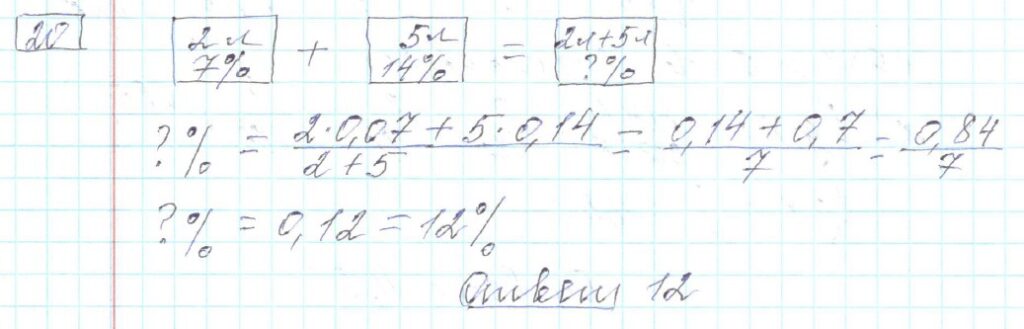 20
2л + 5л = 2л+5л
7% 14% ?%
?% = (2·0,07 + 5·0,14)/(2+5) = (0,14 + 0,7)/7 = 0,84/7
?% = 0,12 = 12%
Ответ 12